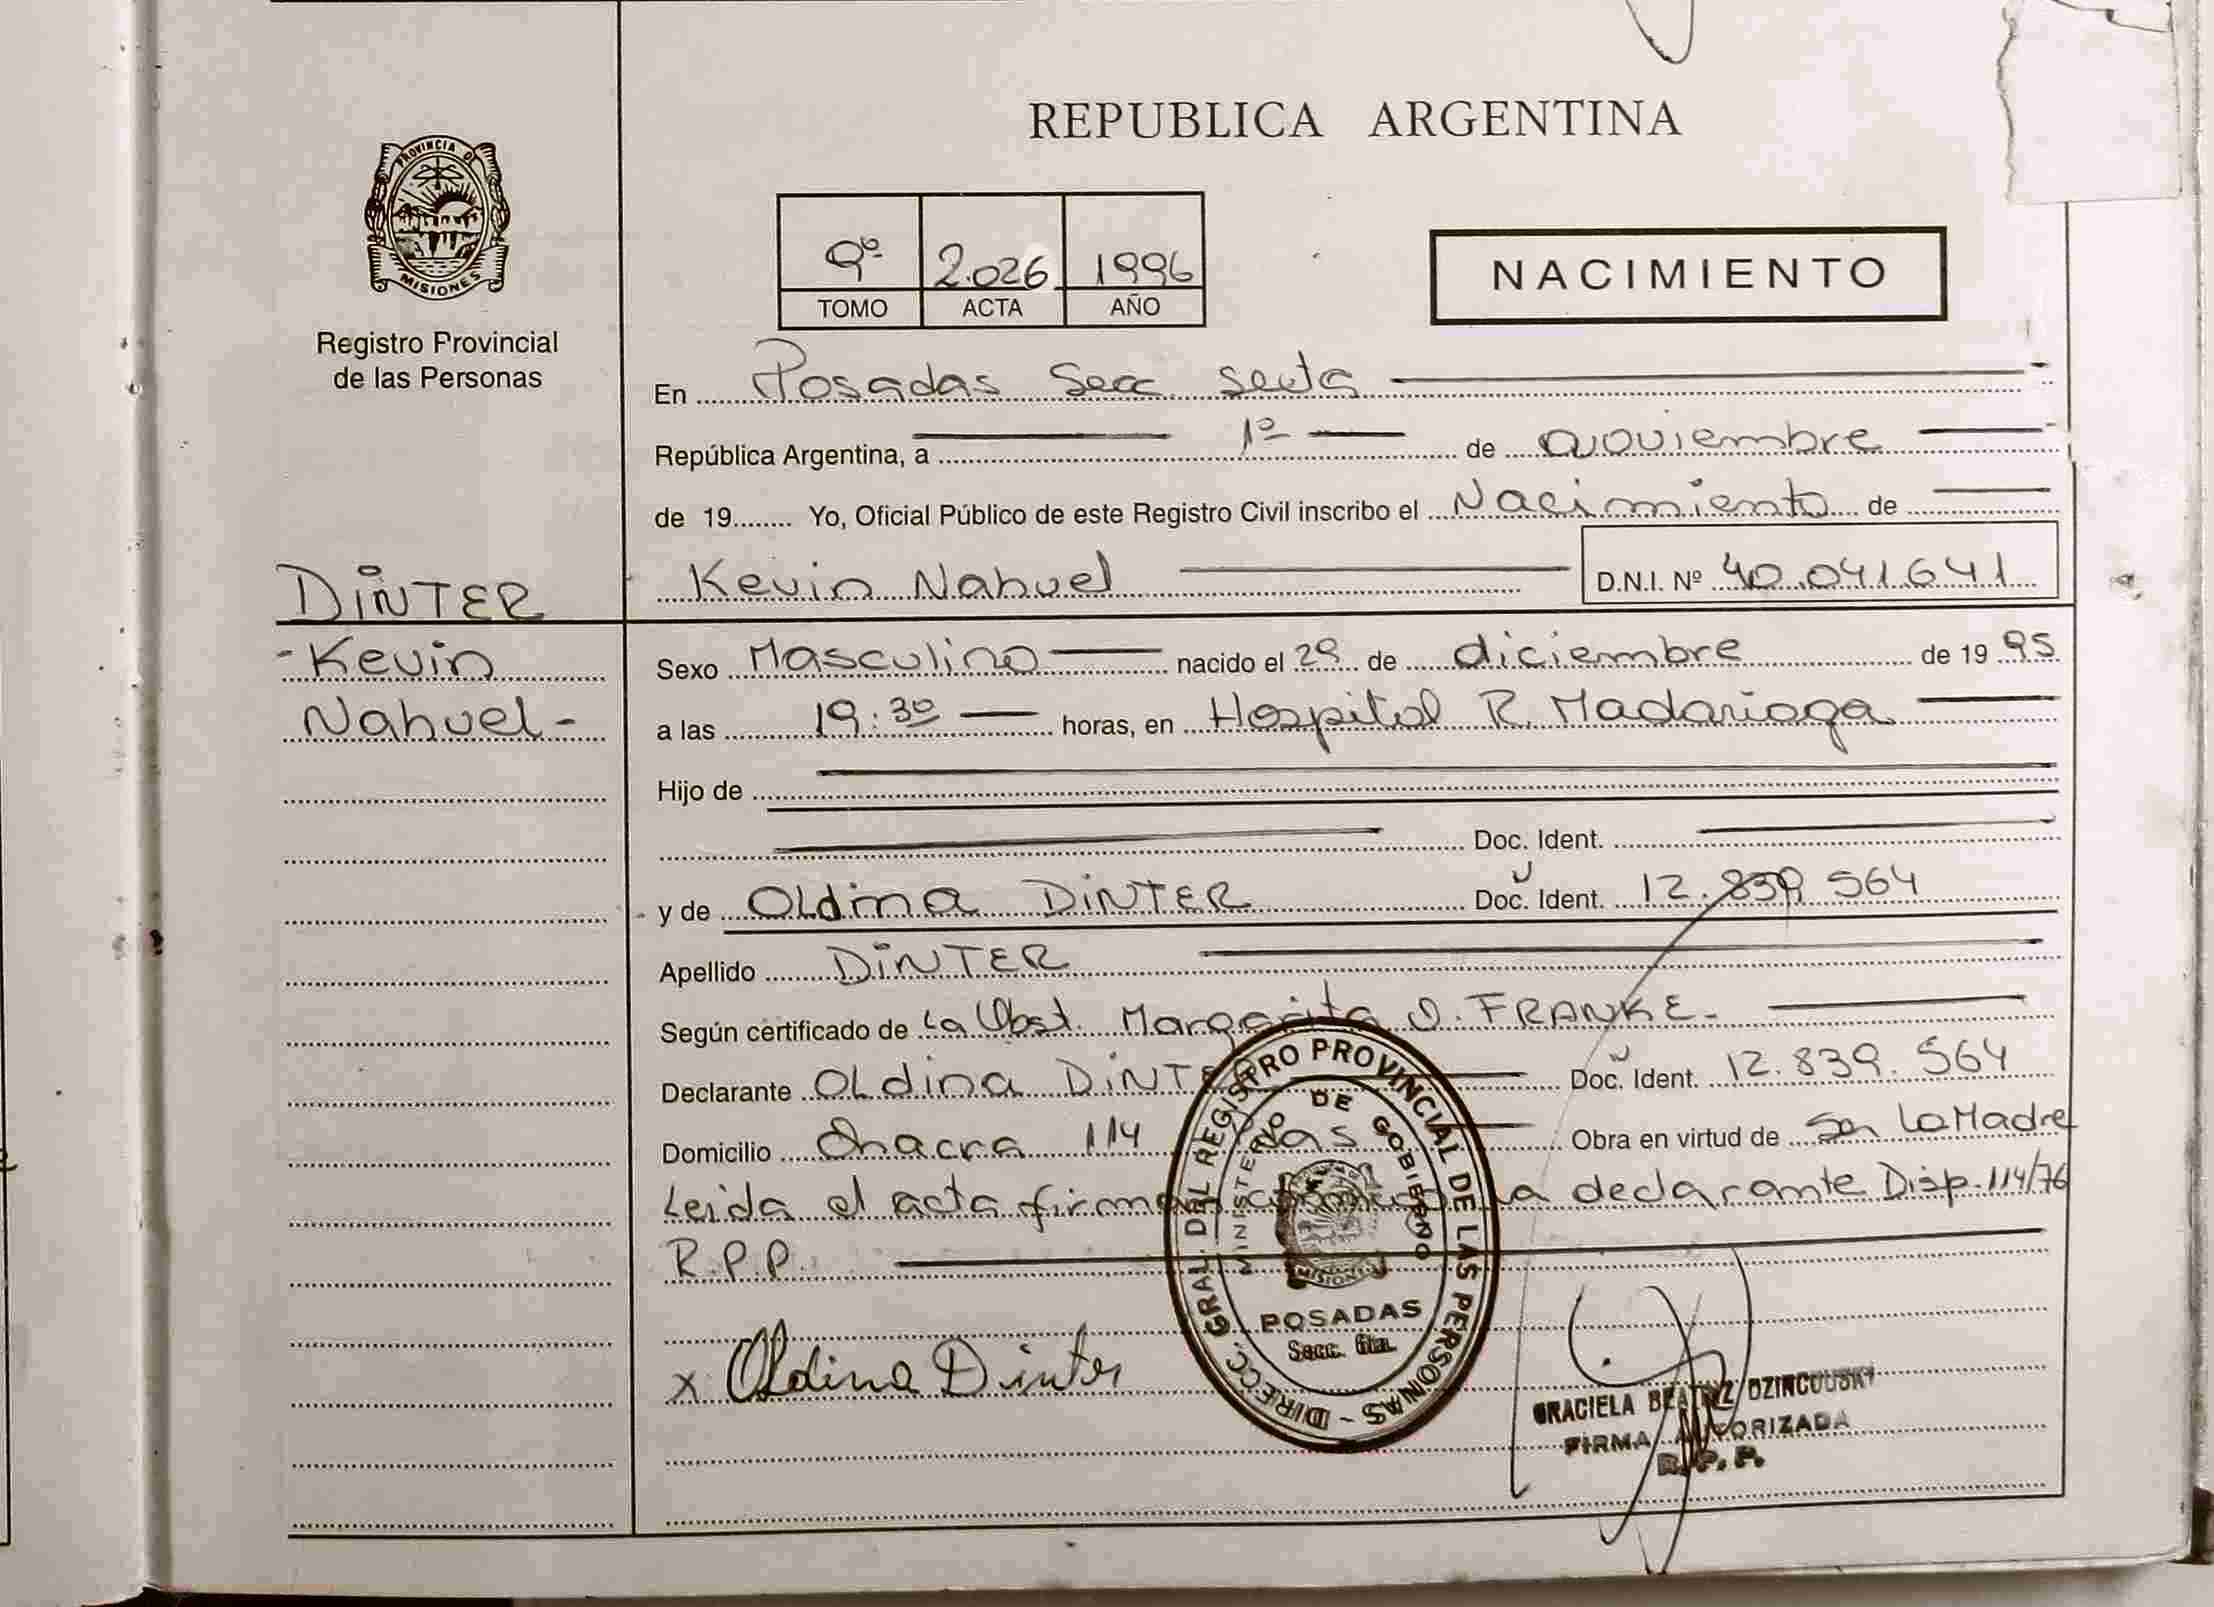 REPUBLICA ARGENTINA
PROVINCIA DE
MISIONES
Registro Provincial
de las Personas
9º 2.026 1996
TOMO ACTA AÑO
NACIMIENTO
En Posadas Secc Sexta
República Argentina, a 1º de noviembre
de 19........ Yo, Oficial Público de este Registro Civil inscribo el Nacimiento de
DiNTER
Kevin Nahuel D.N.I. Nº 40.041.641
- Kevin
Nahuel -
Sexo Masculino nacido el 29 de diciembre de 19 95
a las 19:30 horas, en Hospital R. Madariaga
Hijo de
Doc. Ident.
y de OLdina DiNTER Doc. Ident. 12.839.564
Apellido DiNTER
Según certificado de La Obst. Margarita O. FRANKE.
Declarante OLdina DiNTER Doc. Ident. 12.839.564
Domicilio Chacra 114 Pdas Obra en virtud de Ser La Madre
Leida el acta firma conmigo la declarante Disp. 114/76
R.P.P.
x Oldina Dinter
DIRECC. GRAL. DEL REGISTRO PROVINCIAL DE LAS PERSONAS -
MINISTERIO DE GOBIERNO
MISIONES
POSADAS
Secc. 6ta.
GRACIELA BEATRIZ DZINCOUSKY
FIRMA AUTORIZADA
R. P. P.